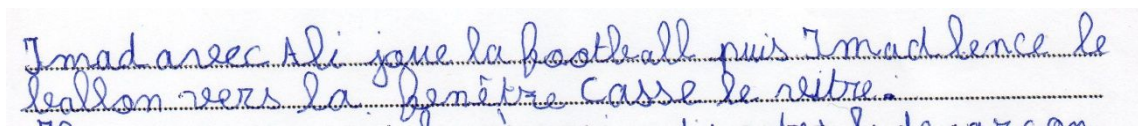 Imad avec Ali joue la football puis Imad lence le
ballon vers la fenêtre casse le vitre.